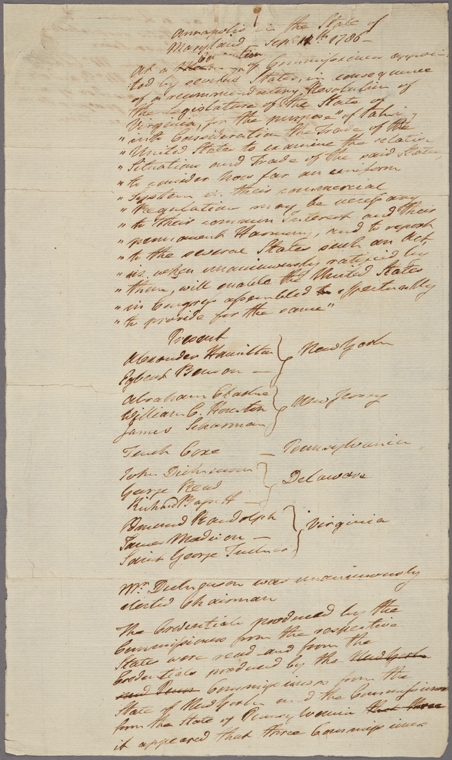 Annapolis in the State of
Maryland Sepr 11th 1786
At a Convention of Commissioners appoin-
ted by several States, in consequence
of a recommendatory Resolution of
the Legislature of the State of
Virginia, for the purpose "of taking
"into Consideration the trade of the
"United States to examine the relative
"Situations and Trade of the said States,
"to consider how far an uniform
"System in their commercial
"Regulations may be necessary
"to their common Interest and their
"permanent Harmony, and to report
"to the several States such an Act
"as, when unanimously ratified by
"them, will enable the United States
"in Congress assembled to effectually
"to provide for the same"
Present
Alexander Hamilton
Egbert Benson —
New York
Abraham Clarke
William C. Houston
James Schureman
New Jersey
Tench Coxe — Pennsylvania
John Dickinson
George Read
Richard Bassett —
Delaware
Edmund Randolph
James Madison —
Saint George Tucker
Virginia
Mr. Dickinson was unanimously
elected Chairman
The Credentials produced by the
Commissioners from the respective
States were read and from the
Credentials produced by the New York
and Penn Commissioners from the
State of New York and the Commissioner
from the State of Pennsylvania that three
it appeared that three Commissioners